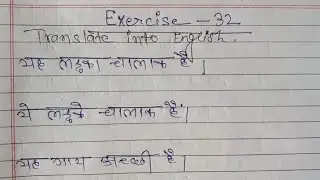 Exercise - 32
Translate into English.
यह लड़का चालाक है।
ये लड़के चालाक हैं।
यह गाय अच्छी है।